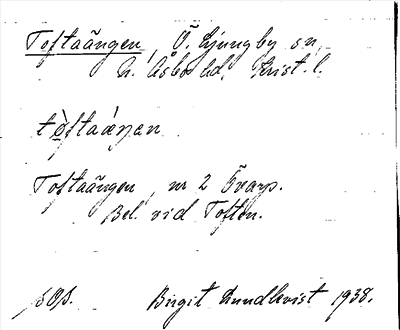 Toftaängen, Ö. Ljungby sn,
N. Åsbo hd, Krist. l.
tòftaáŋan
Toftaängen, nr 2 Tvarp.
Bel. vid Toften.
Birgit Lundkvist 1938.